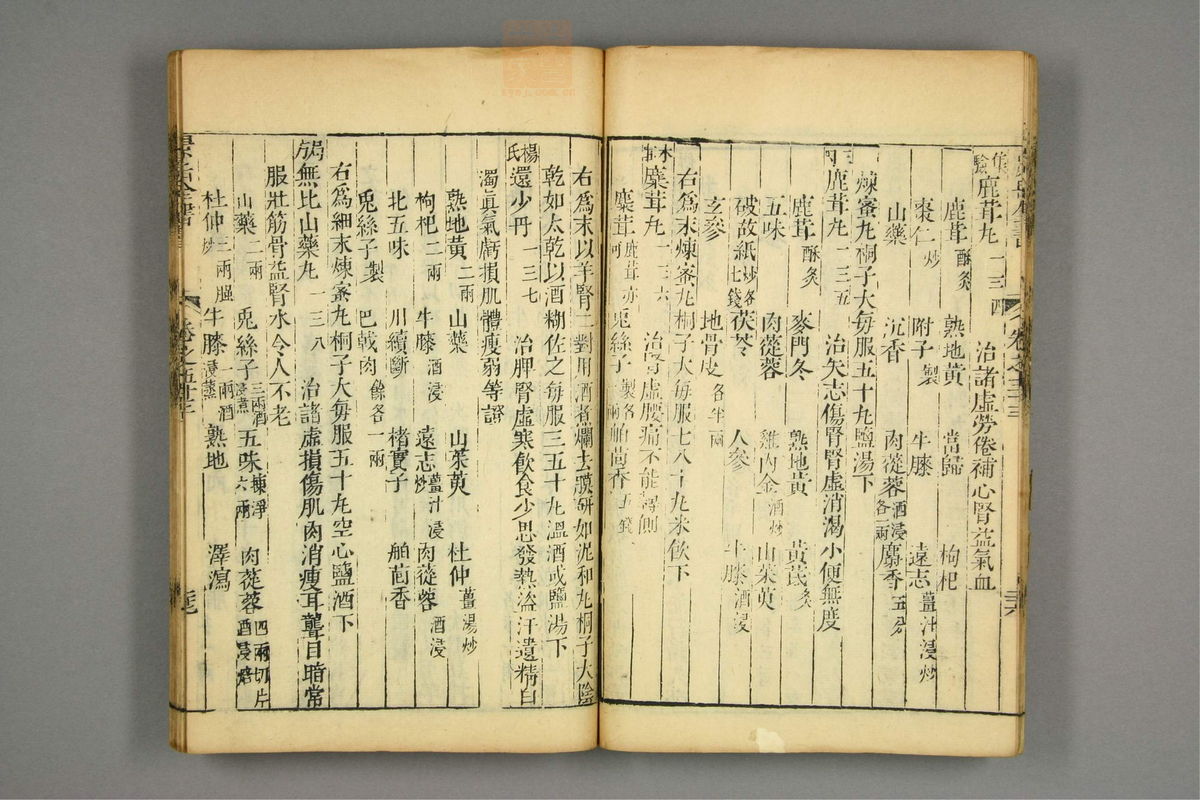 鹿茸丸一三四 治諸虛勞倦補心腎益氣血
鹿茸酥炙 熟地黃 當歸 枸杞
棗仁炒 附子製 牛膝 遠志薑汁浸炒
山藥 沉香 肉蓯蓉酒浸各一兩 麝香五分
煉蜜丸桐子大每服五十丸鹽湯下
鹿茸丸一三五 治失志傷腎腎虛消渴小便無度
鹿茸酥炙 麥門冬 熟地黃 黃芪炙
五味 肉蓯蓉 雞內金酒炒 山茱萸
破故紙炒各七錢 茯苓 人參 牛膝酒浸
玄參 地骨皮各半兩
右爲末煉蜜丸桐子大每服七八十丸米飲下
麋茸丸一三六 治腎虛腰痛不能轉側
麋茸鹿茸亦可 兎絲子製各一兩 舶茴香五錢
右爲末以羊腎二對用酒煮爛去膜研如泥和丸桐子大陰
乾如太乾以酒糊佐之每服三五十丸溫酒或鹽湯下
楊氏還少丹一三七 治脾腎虛寒飲食少思發熱盜汗遺精白
濁真氣虧損肌體瘦弱等證
熟地黃二兩 山藥 山茱萸 杜仲薑湯炒
枸杞二兩 牛膝酒浸 遠志薑汁浸炒 肉蓯蓉酒浸
北五味 川續斷 楮實子 舶茴香
兎絲子製 巴戟肉餘各一兩
右爲細末煉蜜丸桐子大每服五十丸空心鹽酒下
無比山藥丸一三八 治諸虛損傷肌肉消瘦耳聾目暗常
服壯筋骨益腎水令人不老
山藥二兩 兎絲子三兩酒浸煮 五味揀淨六兩 肉蓯蓉四兩切片酒浸焙
杜仲三兩炒 牛膝一兩酒浸蒸 熟地 澤瀉